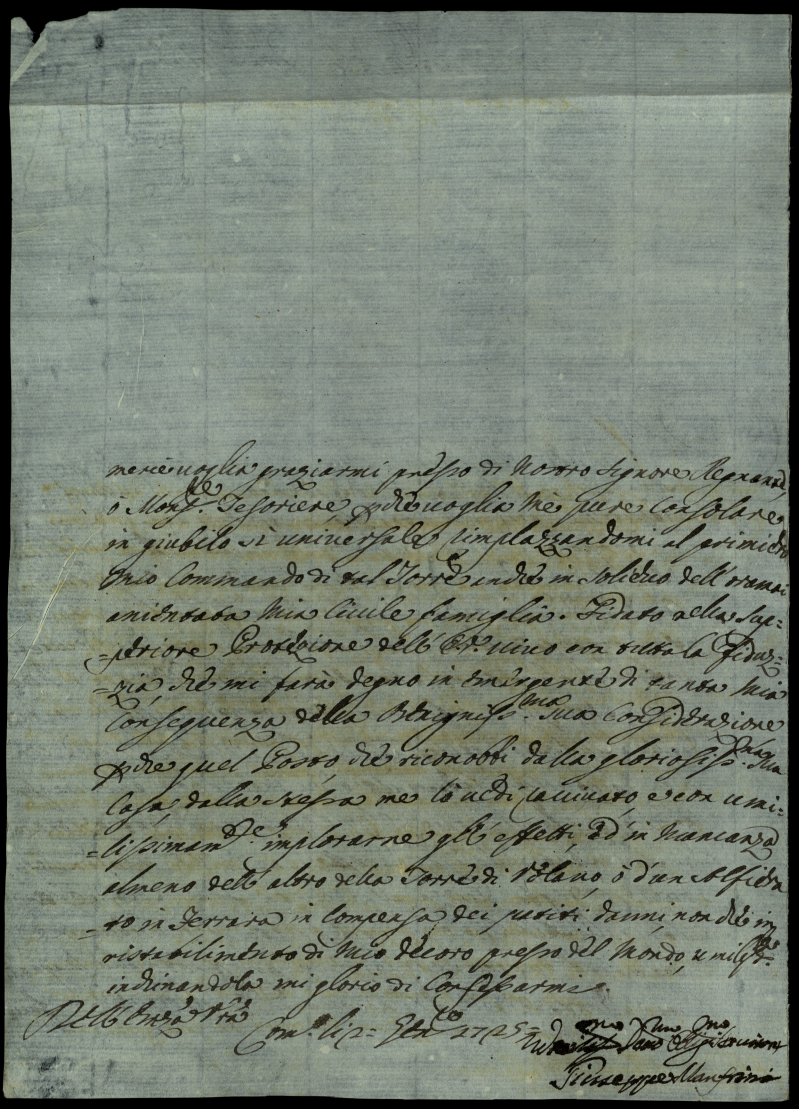 merie voglia graziarmi presso di Nostro Signore Regnante,
ò Mons.re Tesoriere, voglia mè pure consolare
in giubilo sì universale, rimplazzandomi al
mio Commando di tal Torre anche in solievo dell'
mia Civile famiglia. Fidato nella Sup=
=periore Protezione dell' E.V. vivo con tutta la fidu=
=zia, che mi farà degno in emergente di tanta mia
Conseguenza della Benigniss.ma Sua Considerazione
che quel Posto, che riconobbi dalla gloriosiss.ma Sua
Casa, dalla stessa me lo vedi, e con umi=
=lissimam.te implorarne gli effetti, ed in mancanza
almeno dell' altro della Torre di Volano, ò d'un Alfiera
=to in Ferrara in compensa dei patiti danni, non che in
ristabilimento di mio decoro presso del Mondo, e
inchinandola mi glorio di Confessarmi.
Dell' Emza Vra
Com.o li 2 Gen.ro 1725
Umiliss.mo Dev.mo
Giuseppe Manfrini